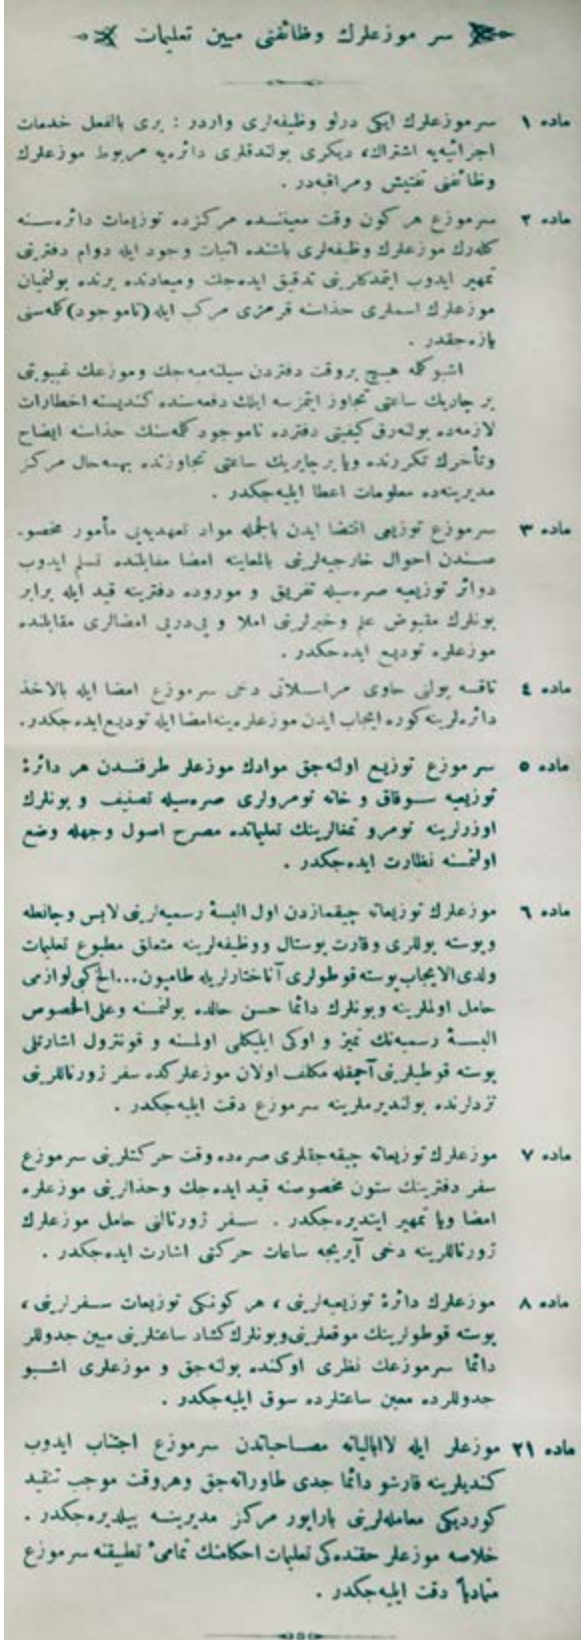 سر موزعلرك وظائفنى مبين تعليمات
ماده ١ سرموزعلرك ايكى درلو وظيفه‌لرى واردر : برى بالفعل خدمات
اجرائيه‌يه اشتراك، ديكرى بولندقلرى دائره‌يه مربوط موزعلرك
وظائفنى تفتيش ومراقبه‌در .
ماده ٢ سرموزع هر كون وقت معيننده مركزده توزيعات دائره‌سنه
كله‌رك موزعلرك وظيفه‌لرى باشنده اثبات وجود ايله دوام دفترينى
تمهير ايدوب ايتمدكلرينى تدقيق ايده‌جك وميعادنده يرنده بولنميان
موزعلرك اسملرى حذاسنه قرمزى مركب ايله (ناموجود) كله‌سنى
يازه‌جقدر .
اشبو كله هيچ بروقت دفتردن سيلنه‌ميه‌جك وموزعك غيبوبتى
بر چاريك ساعتى تجاوز ايتمزسه ايلك دفعه‌سنده كنديسنه اخطارات
لازمه‌ده بولنه‌رق كيفيتى دفترده ناموجود كله‌سنك حذاسنه ايضاح
وتأخرك تكررنده ويا بر چاريك ساعتى تجاوزنده بهمه‌حال مركز
مديرينه‌ده معلومات اعطا ايليه‌جكدر .
ماده ٣ سرموزع توزيعى اقتضا ايدن بالجمله مواد تعهديه‌يى مأمور مخصو-
صندن احوال خارجيه‌لرينى بالمعاينه امضا مقابلنده تسلم ايدوب
دوائر توزيعيه صره‌سيله تفريق و موروده دفترينه قيد ايله برابر
بونلرك مقبوض علم وخبرلرينى املا و بى‌دربى امضالرى مقابلنده
موزعلره توديع ايده‌جكدر .
ماده ٤ تاقسه پولى حاوى مراسلاتى دخى سرموزع امضا ايله بالاخذ
دائره‌لرينه كوره ايجاب ايدن موزعلره‌ينه امضا ايله توديع ايده‌جكدر.
ماده ٥ سر موزع توزيع اولنه‌جق موادك موزعلر طرفندن هر دائرۀ
توزيعيه سوقاق و خانه نومرولرى صره‌سيله تصنيف و بونلرك
اوزرلرينه نومرو تمغالرينك تعليماتده مصرح اصول وجهله وضع
اولنمسنه نظارت ايده‌جكدر .
ماده ٦ موزعلرك توزيعاته چيقمازدن اول البسۀ رسميه‌لرينى لابس وچانطه
وپوسته پوللرى وقارت پوستال ووظيفه‌لرينه متعلق مطبوع تعليمات
ولدى الايجاب پوسته قوطولرى آناختارلريله طامپون...الخ كبى لوازمى
حامل اولملرينه وبونلرك دائما حسن حالده بولنمسنه وعلى الخصوص
البسۀ رسميه‌نك تميز و اوكى ايليكلى اولمسنه و قونترول اشارتلى
پوسته قوطيلرينى آچمغله مكلف اولان موزعلركده سفر ژورناللرينى
نزدلرنده بولنديرملرينه سرموزع دقت ايليه‌جكدر .
ماده ٧ موزعلرك توزيعاته چيقه‌جقلرى صره‌ده وقت حركتلرينى سرموزع
سفر دفترينك ستون مخصوصنه قيد ايده‌جك وحذالرينى موزعلره
امضا ويا تمهير ايتديره‌جكدر . سفر ژورنالنى حامل موزعلرك
ژورناللرينه دخى آيريجه ساعات حركتى اشارت ايده‌جكدر .
ماده ٨ موزعلرك دائرۀ توزيعيه‌لرينى ، هر كونكى توزيعات سفرلرينى ،
پوسته قوطولرينك موقعلرينى وبونلرك كشاد ساعتلرينى مبين جدوللر
دائما سرموزعك نظرى اوكنده بولنه‌جق و موزعلرى اشبو
جدوللرده معين ساعتلرده سوق ايليه‌جكدر .
ماده ٢١ موزعلر ايله لااباليانه مصاحباتدن سرموزع اجتناب ايدوب
كنديلرينه قارشو دائما جدى طاورانه‌جق وهروقت موجب تنقيد
كورديكى معامله‌لرينى باراپور مركز مديرينه بيلديره‌جكدر .
خلاصه موزعلر حقنده‌كى تعليمات احكامنك تمامىٔ تطبيقنه سرموزع
متمادياً دقت ايليه‌جكدر .